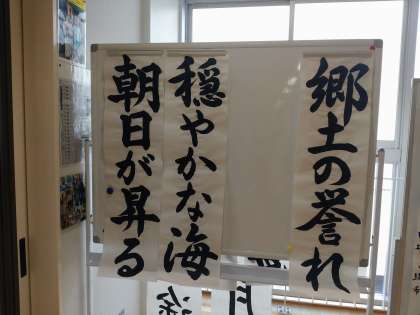 郷土の誉れ
穏やかな海
朝日が昇る